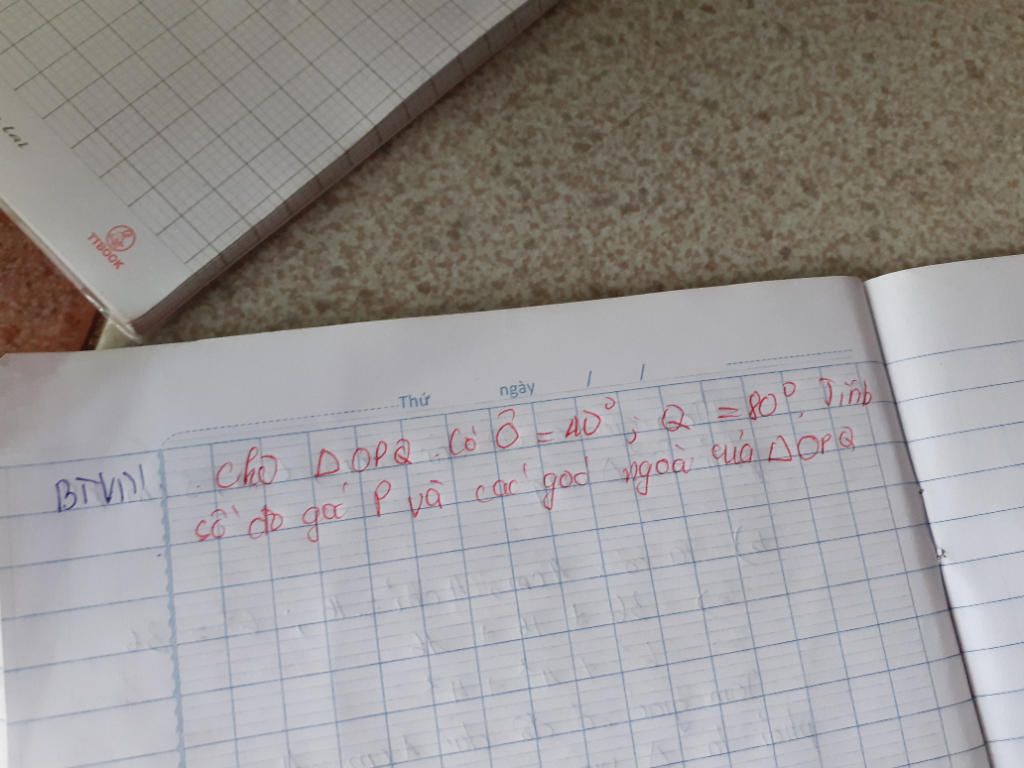 TIBOOK
Thứ ngày / /
BTVN
Cho Δ OPQ. Có Ô = 40°; Q = 80°. Tính
số đo góc P và các góc ngoài của Δ OPQ